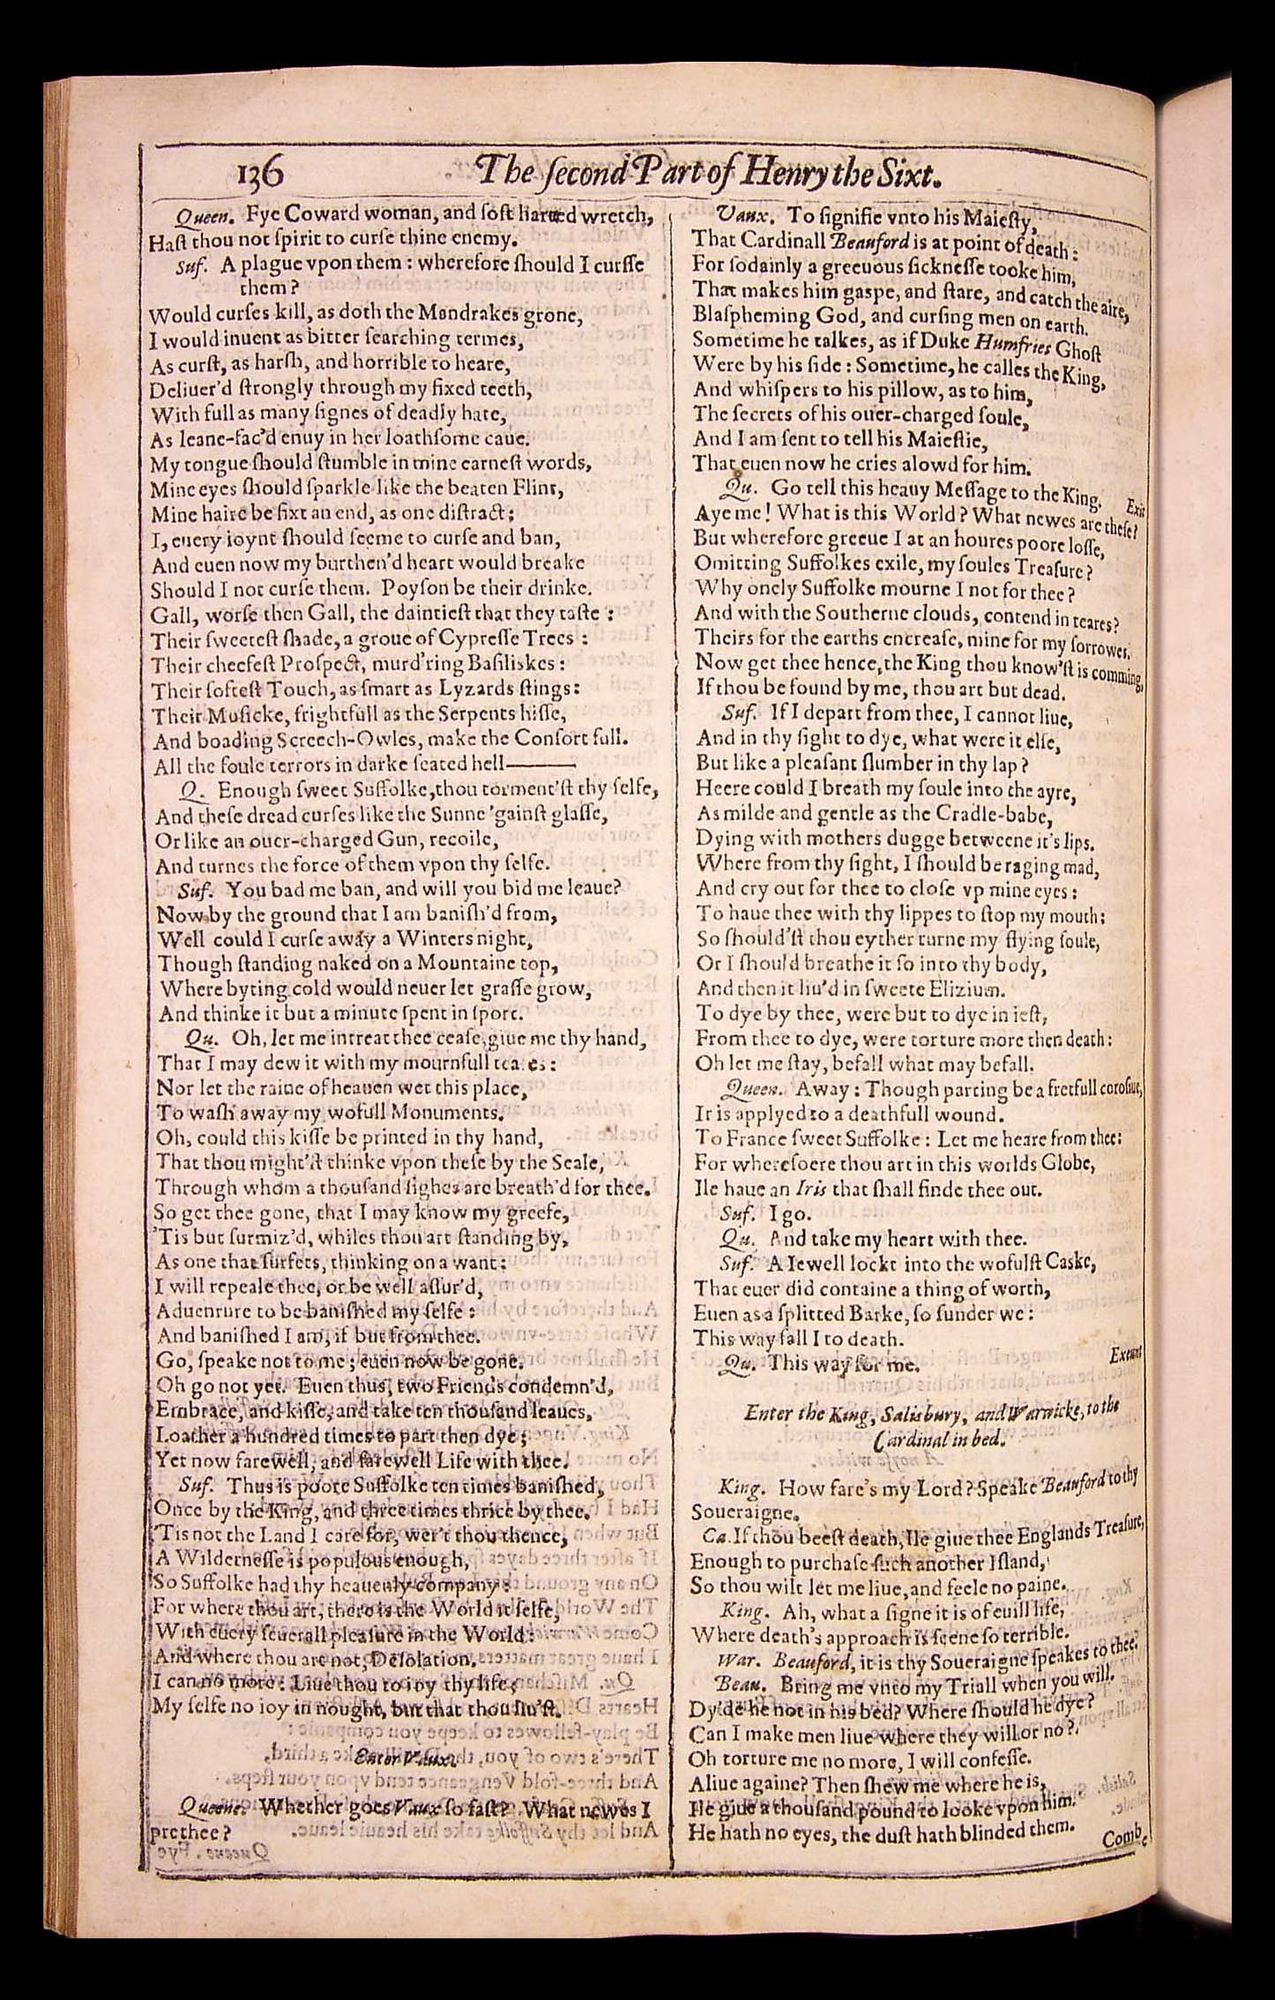 136 The ſecond Part of Henry the Sixt.
Queen. Fye Coward woman, and ſoft harted wretch,
Haſt thou not ſpirit to curſe thine enemy.
Suf. A plague vpon them: wherefore ſhould I curſſe
them?
Would curſes kill, as doth the Mandrakes grone,
I would inuent as bitter ſearching termes,
As curſt, as harſh, and horrible to heare,
Deliuer'd ſtrongly through my fixed teeth,
With full as many ſignes of deadly hate,
As leane-fac'd enuy in her loathſome caue.
My tongue ſhould ſtumble in mine earneſt words,
Mine eyes ſhould ſparkle like the beaten Flint,
Mine haire be fixt an end, as one diſtract:
I, euery ioynt ſhould ſeeme to curſe and ban,
And euen now my burthen'd heart would breake
Should I not curſe them. Poyſon be their drinke.
Gall, worſe then Gall, the daintieſt that they taſte:
Their ſweeteſt ſhade, a groue of Cypreſſe Trees:
Their cheefeſt Proſpect, murd'ring Baſiliskes:
Their ſofteſt Touch, as ſmart as Lyzards ſtings:
Their Muſicke, frightfull as the Serpents hiſſe,
And boading Screech-Owles, make the Conſort full.
All the foule terrors in darke ſeated hell———
Q. Enough ſweet Suffolke, thou torment'ſt thy ſelfe,
And theſe dread curſes like the Sunne 'gainſt glaſſe,
Or like an ouer-charged Gun, recoile,
And turnes the force of them vpon thy ſelfe.
Suf. You bad me ban, and will you bid me leaue?
Now by the ground that I am baniſh'd from,
Well could I curſe away a Winters night,
Though ſtanding naked on a Mountaine top,
Where byting cold would neuer let graſſe grow,
And thinke it but a minute ſpent in ſport.
Qu. Oh, let me intreat thee ceaſe, giue me thy hand,
That I may dew it with my mournfull teares:
Nor let the raine of heauen wet this place,
To waſh away my wofull Monuments.
Oh, could this kiſſe be printed in thy hand,
That thou might'ſt thinke vpon theſe by the Seale,
Through whom a thouſand ſighes are breath'd for thee.
So get thee gone, that I may know my greefe,
'Tis but ſurmiz'd, whiles thou art ſtanding by,
As one that ſurfets, thinking on a want:
I will repeale thee, or be well aſſur'd,
Aduenture to be baniſhed my ſelfe:
And baniſhed I am, if but from thee.
Go, ſpeake not to me; euen now be gone.
Oh go not yet. Euen thus, two Friends condemn'd,
Embrace, and kiſſe, and take ten thouſand leaues,
Loather a hundred times to part then dye;
Yet now farewell, and farewell Life with thee.
Suf. Thus is poore Suffolke ten times baniſhed,
Once by the King, and three times thrice by thee.
'Tis not the Land I care for, wer't thou thence,
A Wilderneſſe is populous enough,
So Suffolke had thy heauenly company:
For where thou art, there is the World it ſelfe,
With euery ſeuerall pleaſure in the World:
And where thou art not, Deſolation.
I can no more: Liue thou to ioy thy life;
My ſelfe no ioy in nought, but that thou liu'ſt.
Enter Vaux.
Queene. Whether goes Vaux ſo faſt? What newes I
prethee?
Vaux. To ſignifie vnto his Maieſty,
That Cardinall Beauford is at point of death:
For ſodainly a greeuous ſickneſſe tooke him,
That makes him gaspe, and ſtare, and catch the aire,
Blaſpheming God, and curſing men on earth.
Sometime he talkes, as if Duke Humfries Ghoſt
Were by his ſide: Sometime, he calles the King,
And whiſpers to his pillow, as to him,
The ſecrets of his ouer-charged ſoule,
And I am ſent to tell his Maieſtie,
That euen now he cries alowd for him.
Qu. Go tell this heauy Meſſage to the King. Exit
Aye me! What is this World? What newes are theſe?
But wherefore greeue I at an houres poore loſſe,
Omitting Suffolkes exile, my ſoules Treaſure?
Why onely Suffolke mourne I not for thee?
And with the Southerne clouds, contend in teares?
Theirs for the earths encreaſe, mine for my ſorrowes.
Now get thee hence, the King thou know'ſt is comming,
If thou be found by me, thou art but dead.
Suf. If I depart from thee, I cannot liue,
And in thy ſight to dye, what were it elſe,
But like a pleaſant ſlumber in thy lap?
Heere could I breath my ſoule into the ayre,
As milde and gentle as the Cradle-babe,
Dying with mothers dugge betweene it's lips.
Where from thy ſight, I ſhould be raging mad,
And cry out for thee to cloſe vp mine eyes:
To haue thee with thy lippes to ſtop my mouth:
So ſhould'ſt thou eyther turne my flying ſoule,
Or I ſhould breathe it ſo into thy body,
And then it liu'd in ſweete Elizium.
To dye by thee, were but to dye in ieſt,
From thee to dye, were torture more then death:
Oh let me ſtay, befall what may befall.
Queen. Away: Though parting be a fretfull coroſiue,
It is applyed to a deathfull wound.
To France ſweet Suffolke: Let me heare from thee:
For whereſoere thou art in this worlds Globe,
Ile haue an Iris that ſhall finde thee out.
Suf. I go.
Qu. And take my heart with thee.
Suf. A Iewell lockt into the wofulſt Caske,
That euer did containe a thing of worth,
Euen as a ſplitted Barke, ſo ſunder we:
This way fall I to death.
Qu. This way for me. Exeunt
Enter the King, Salisbury, and Warwicke, to the
Cardinal in bed.
King. How fare's my Lord? Speake Beauford to thy
Soueraigne.
Ca. If thou beeſt death, Ile giue thee Englands Treaſure,
Enough to purchaſe ſuch another Iſland,
So thou wilt let me liue, and feele no paine.
King. Ah, what a ſigne it is of euill life,
Where death's approach is ſeene ſo terrible.
War. Beauford, it is thy Soueraigne ſpeakes to thee.
Beau. Bring me vnto my Triall when you will.
Dy'de he not in his bed? Where ſhould he dye?
Can I make men liue where they will or no?
Oh torture me no more, I will confeſſe.
Aliue againe? Then ſhew me where he is,
Ile giue a thouſand pound to looke vpon him.
He hath no eyes, the duſt hath blinded them.
Combe